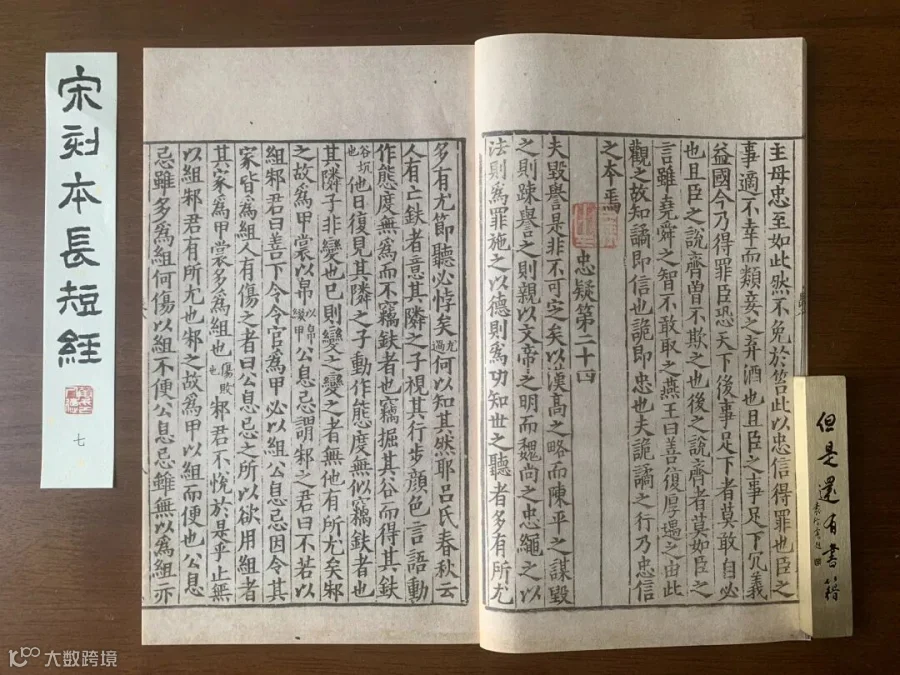 主母忠至如此然不免於笞此以忠信得罪也臣之
事適不幸而類妾之弃酒也且臣之事足下冗義
益國今乃得罪臣恐天下後事足下者莫敢自必
也且臣之說齊曽不欺之也後之說齊者莫如臣之
言雖堯舜之智不敢取之燕王曰善復厚遇之由此
觀之故知譎即信也詭即忠也夫詭譎之行乃忠信
之本焉
忠疑第二十四
夫毀譽是非不可定矣以漢高之略而陳平之謀毀
之則踈譽之則親以文帝之明而魏尚之忠繩之以
法則爲罪施之以德則爲功知世之聽者多有所尤
多有尤節聽必悖矣尤過何以知其然耶吕氏春秋云
人有亡鈇者意其隣之子視其行步顔色言語動
作態度無爲而不竊鈇者也竊掘其谷而得其鈇
谷坑也他日復見其隣之子動作態度無似竊鈇者也
其隣子非變也已則變之變之者無他有所尤矣邾
之故爲甲裳以帛以帛綴甲公息忌謂邾之君曰不若以
組邾君曰善下令令官爲甲必以組公息忌因令其
家皆爲組人有傷之者曰公息忌之所以欲用組者
其家爲甲裳多爲組也傷敗也邾君不恱於是乎止無
以組邾君有所尤也邾之故爲甲以組而便也公息
忌雖多爲組何傷以組不便公息忌雖無以爲組亦
宋刻本長短經
七
但是還有書籍
大数跨境